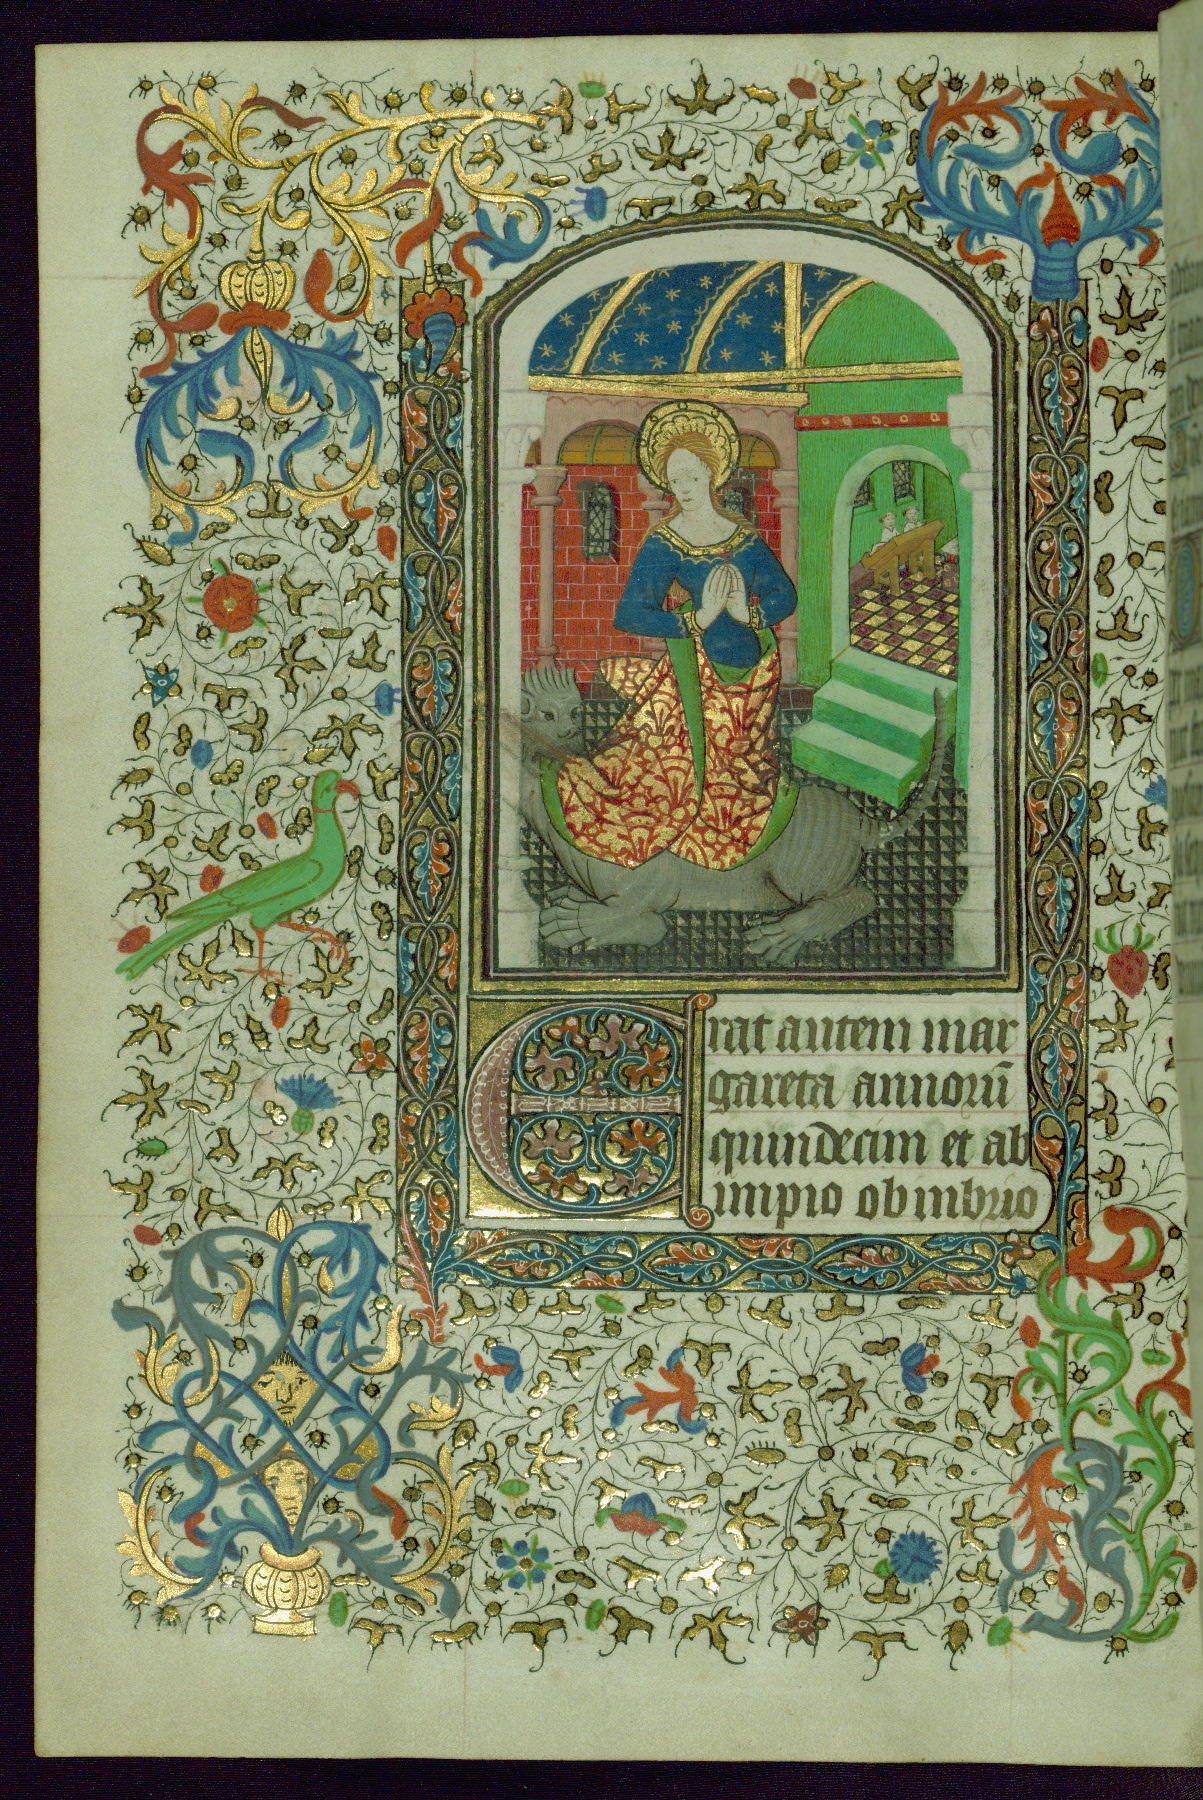 Erat autem mar
gareta annorū
quindecim et ab
impio obinbrio